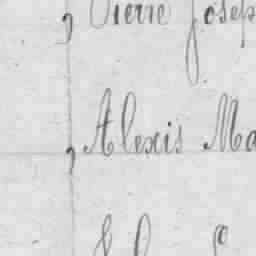 , Pierre Josep
, Alexis Ma